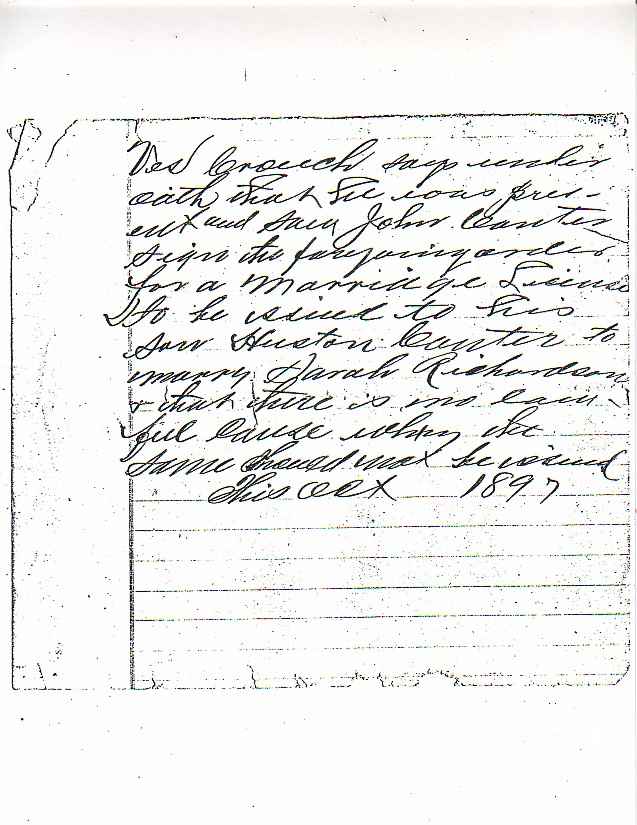 Ves Crouch says under
oath that he was pres-
ent and saw John Canter
sign the forgoing order
for a Marridge License
to be issued to his
son Huston Canter to
marry Sarah Richardson
& that there is no law-
ful cause why the
same should not be issued
This Oct 1897